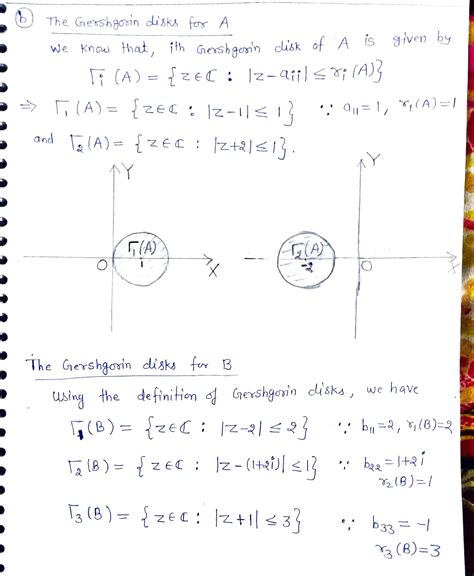 (b) The Gershgorin disks for A
We know that, ith Gershgorin disk of A is given by
Γi (A) = {z∈ℂ : |z-aii| ≤ ri (A)}
⇒ Γ1 (A) = {z∈ℂ : |z-1| ≤ 1} ∵ a11=1, r1(A)=1
and Γ2(A) = {z∈ℂ : |z+2| ≤ 1}.
Y Y
Γ1(A) Γ2(A)
1 -2
O X O X
The Gershgorin disks for B
Using the definition of Gershgorin disks, we have
Γ1(B) = {z∈ℂ : |z-2| ≤ 2} ∵ b11=2, r1(B)=2
Γ2(B) = {z∈ℂ : |z-(1+2i)| ≤ 1} ∵ b22=1+2i
r2(B)=1
Γ3(B) = {z∈ℂ : |z+1| ≤ 3} ∵ b33=-1
r3(B)=3